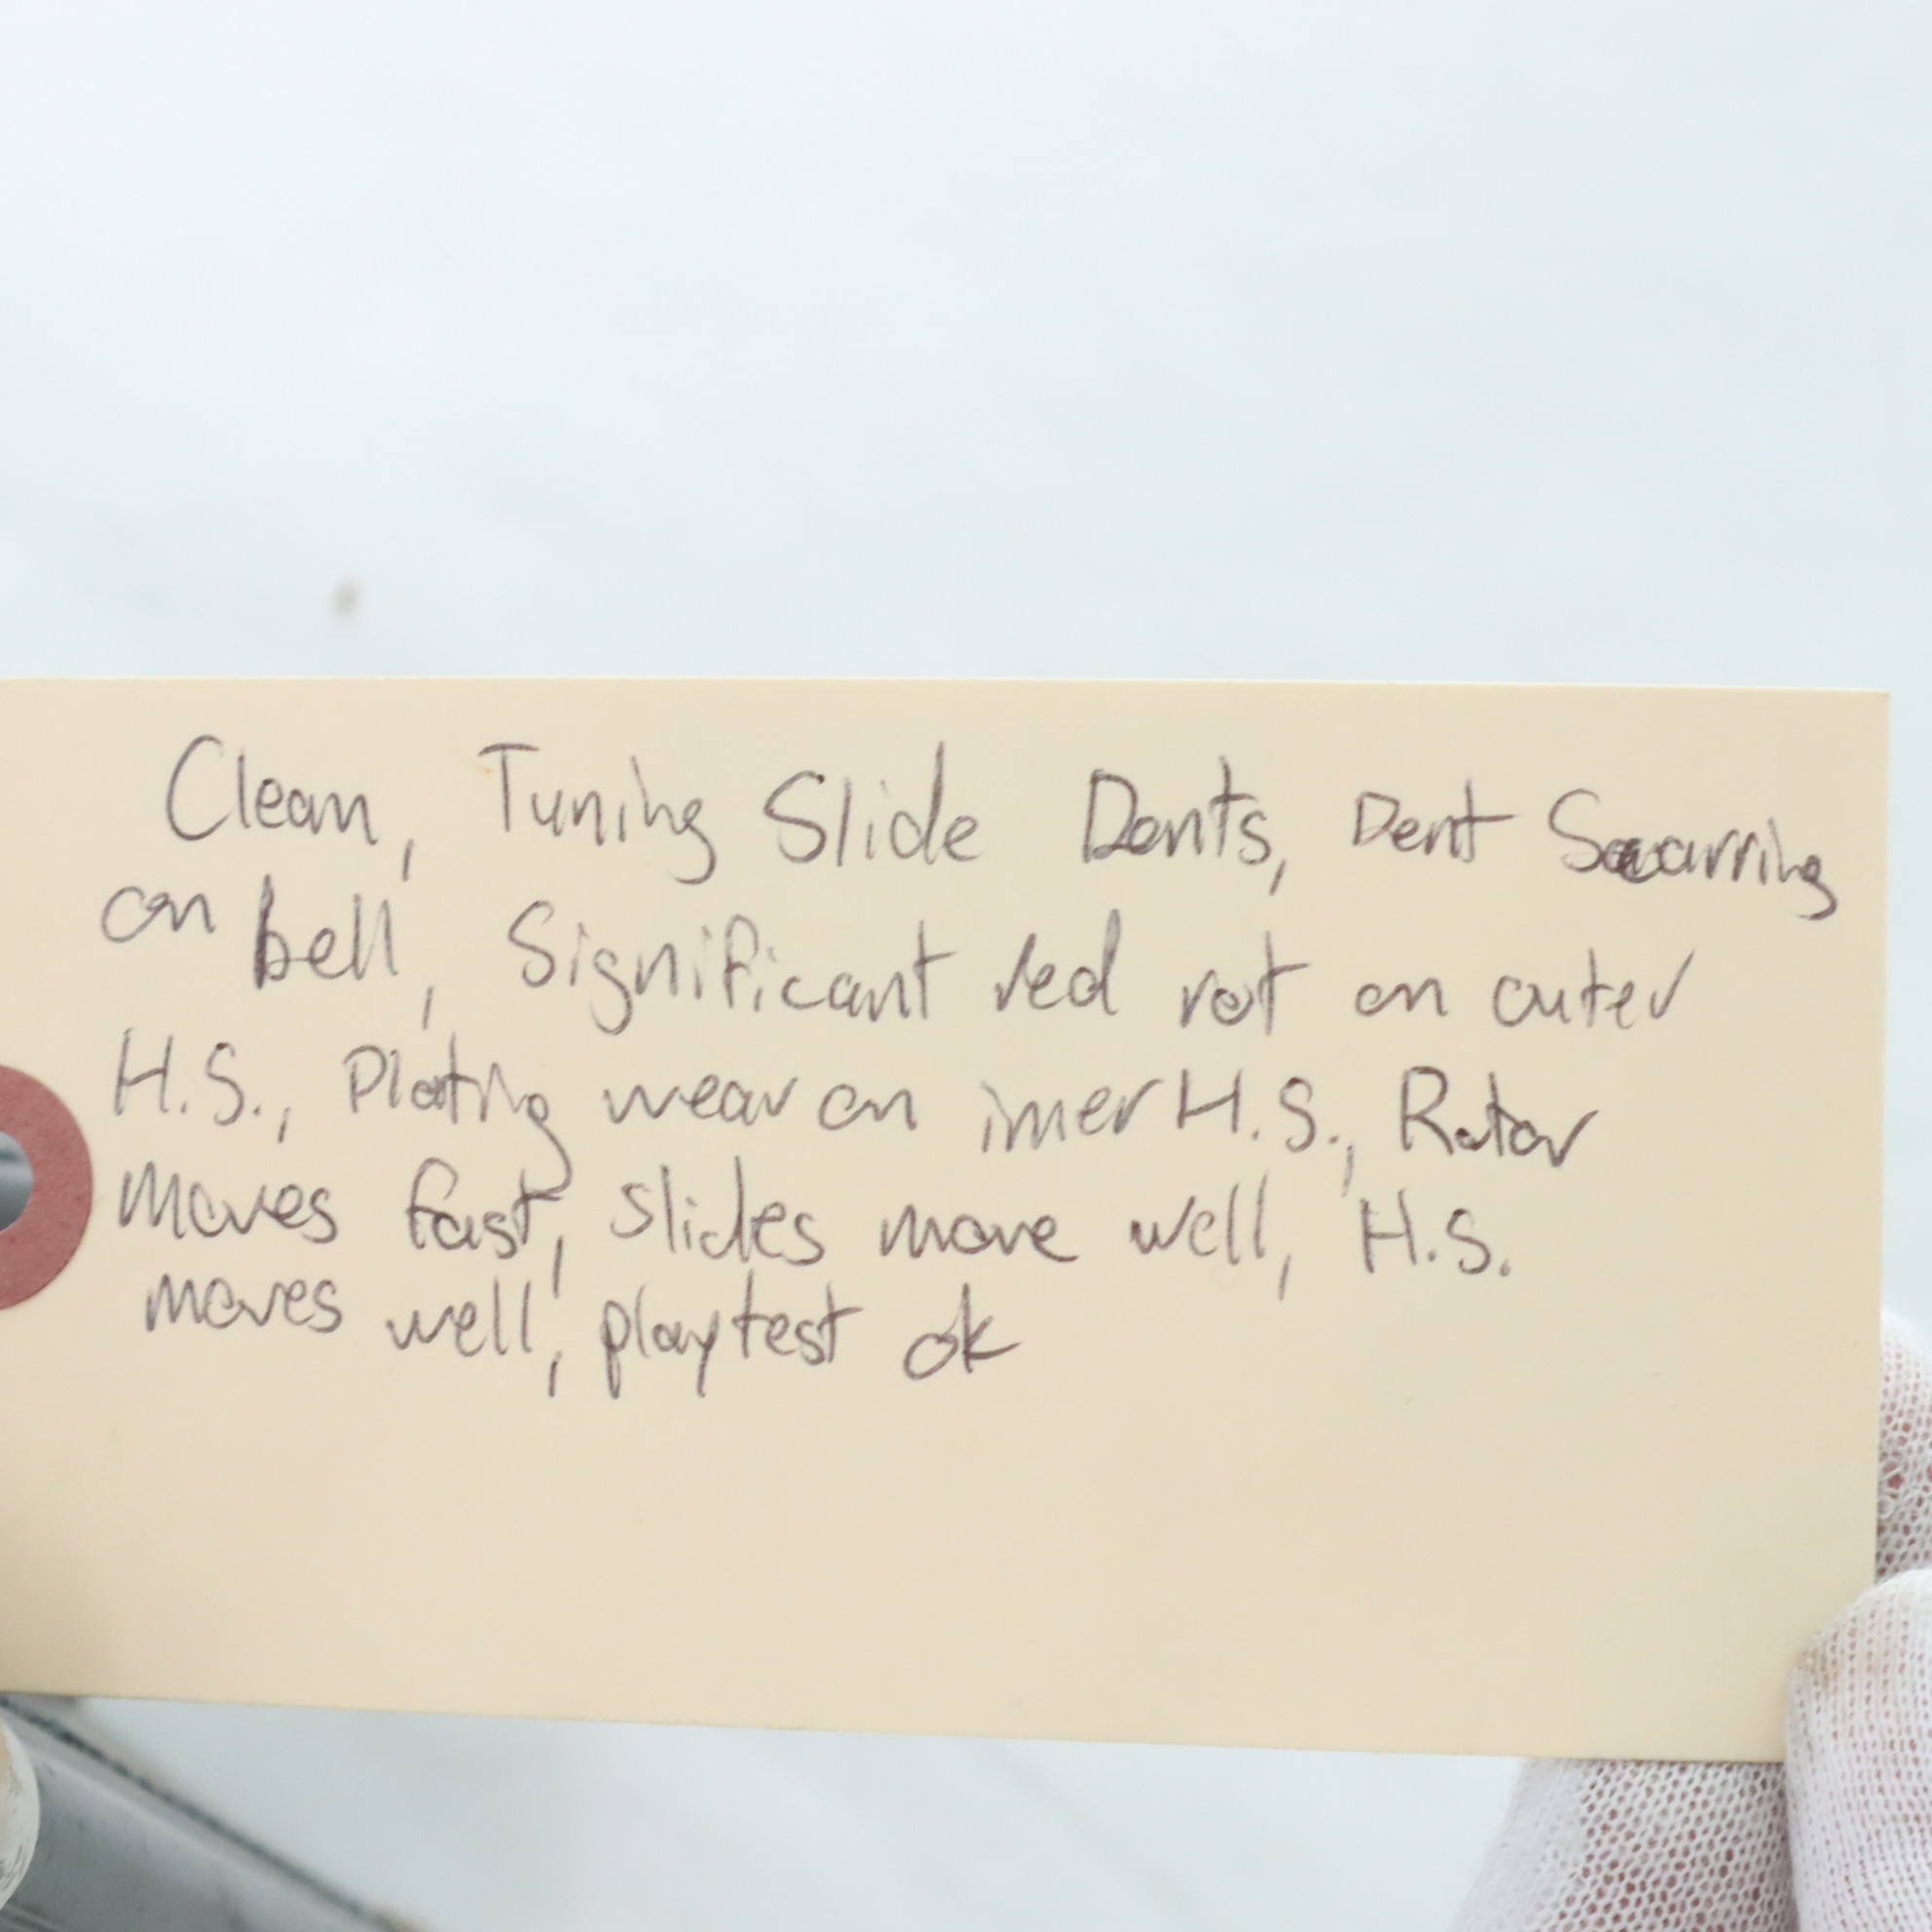 Clean, Tuning Slide Dents, Dent Scarring
on bell, Significant red rot on outer
H.S., Plating wear on inner H.S., Rotor
moves fast, slides move well, H.S.
moves well, playtest ok